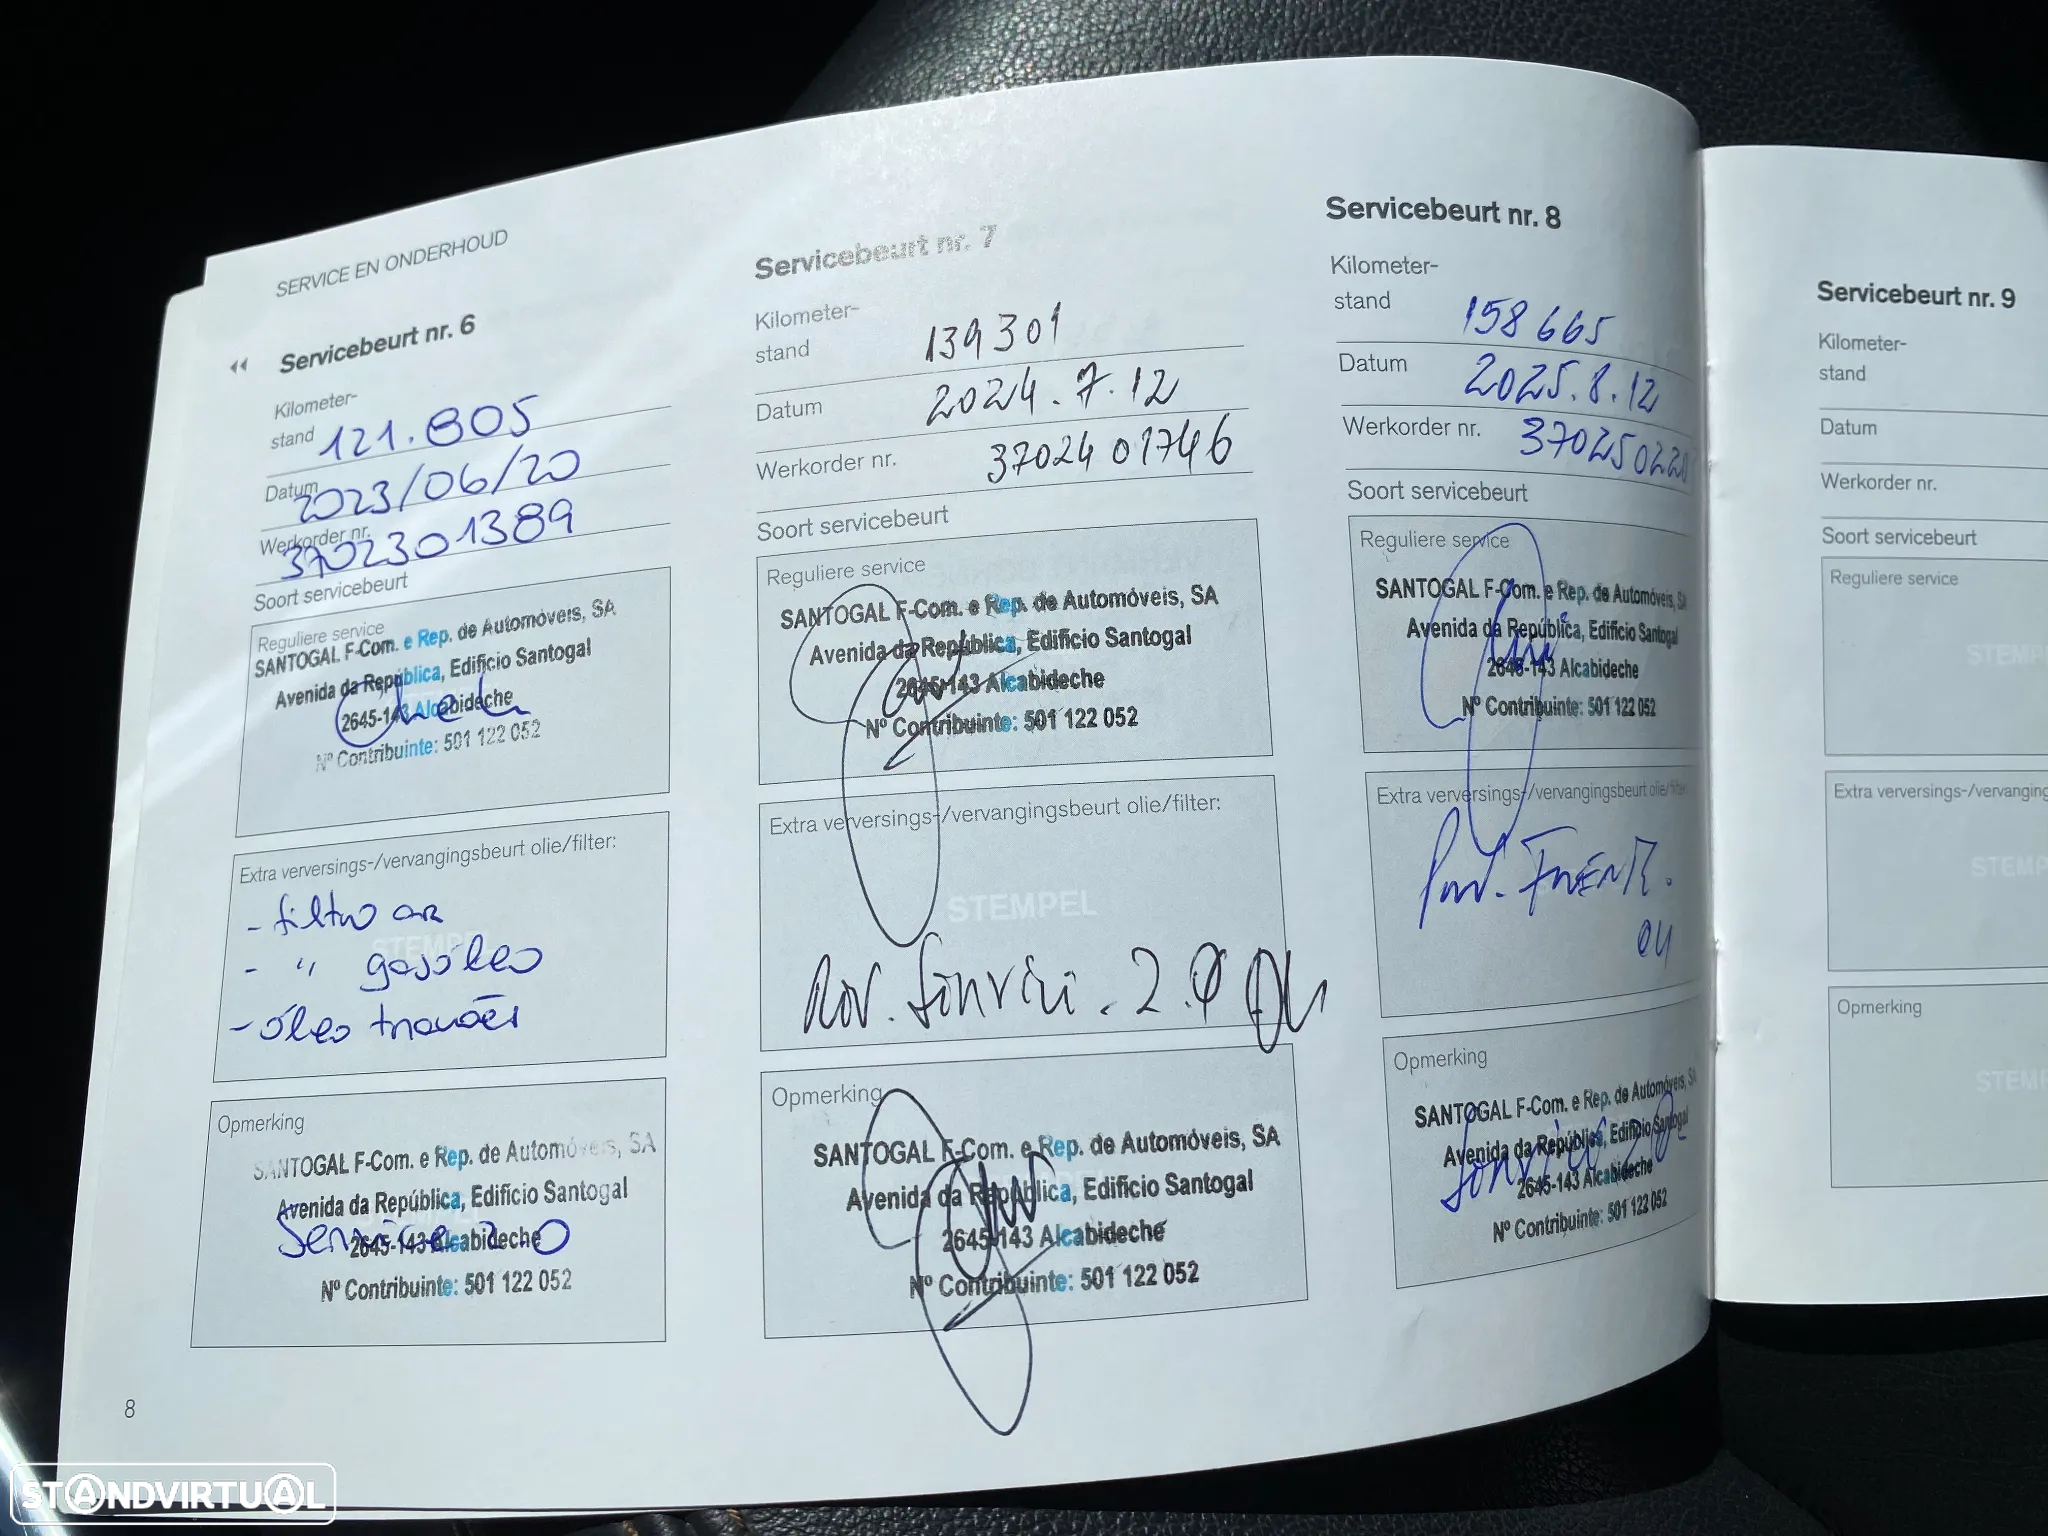 SERVICE EN ONDERHOUD
Servicebeurt nr. 6
Kilometer-
stand 121.805
Datum 2023/06/20
Werkorder nr. 3702301389
Soort servicebeurt
Reguliere service
SANTOGAL F-Com. e Rep. de Automóveis, SA
Avenida da República, Edifício Santogal
2645-143 Alcabideche
Nº Contribuinte: 501 122 052
Extra verversings-/vervangingsbeurt olie/filter:
STEMPEL
- filtro ar
- " gasóleo
- óleo travões
Opmerking
SANTOGAL F-Com. e Rep. de Automóveis, SA
Avenida da República, Edifício Santogal
2645-143 Alcabideche
Service 2.0
Nº Contribuinte: 501 122 052
8
Servicebeurt nr. 7
Kilometer-
stand 139301
Datum 2024.7.12
Werkorder nr. 3702401746
Soort servicebeurt
Reguliere service
SANTOGAL F-Com. e Rep. de Automóveis, SA
Avenida da República, Edifício Santogal
2645-143 Alcabideche
Nº Contribuinte: 501 122 052
Extra verversings-/vervangingsbeurt olie/filter:
STEMPEL
2.0
Opmerking
SANTOGAL F-Com. e Rep. de Automóveis, SA
Avenida da República, Edifício Santogal
2645-143 Alcabideche
Nº Contribuinte: 501 122 052
Servicebeurt nr. 8
Kilometer-
stand 158665
Datum 2025.8.12
Werkorder nr.
Soort servicebeurt
Reguliere service
SANTOGAL F-Com. e Rep. de Automóveis, SA
Avenida da República, Edifício Santogal
2645-143 Alcabideche
Nº Contribuinte: 501 122 052
Extra verversings-/vervangingsbeurt olie/filter
Opmerking
SANTOGAL F-Com. e Rep. de Automóveis, SA
Avenida da República, Edifício Santogal
2645-143 Alcabideche
Nº Contribuinte: 501 122 052
Servicebeurt nr. 9
Kilometer-
stand
Datum
Werkorder nr.
Soort servicebeurt
Reguliere service
STEMP
Extra verversings-/vervanging
STEMP
Opmerking
STEMP
STANDVIRTUAL